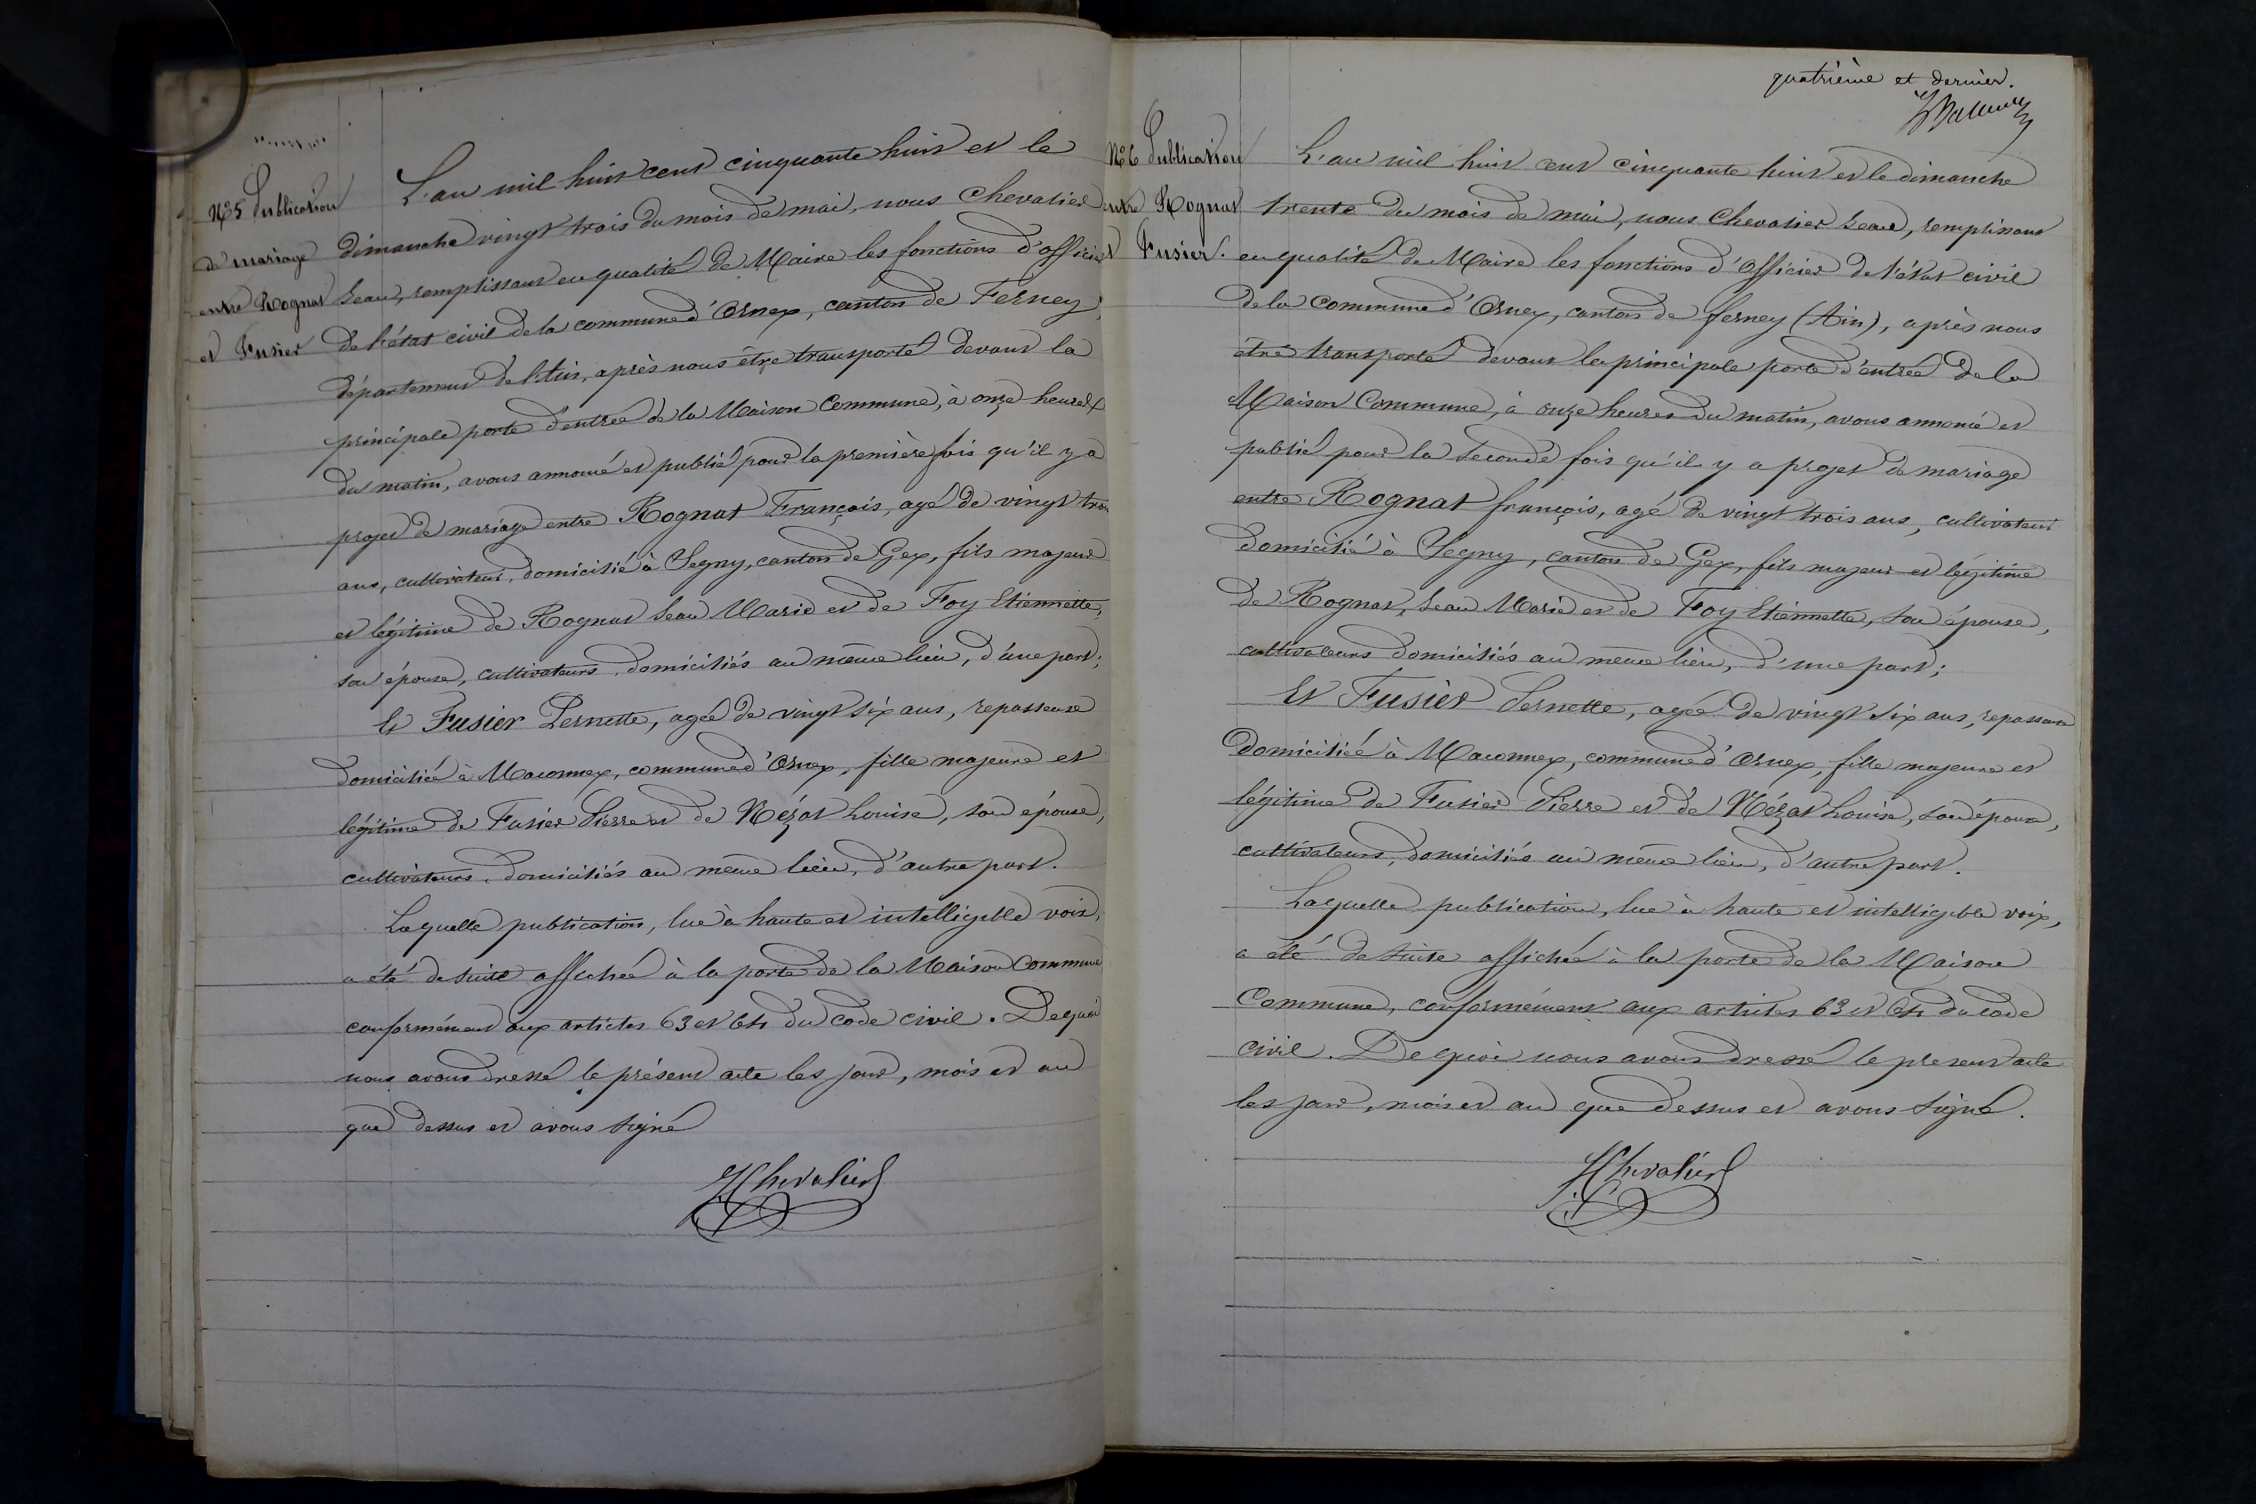 N°5 Publication
de mariage
entre Rognat
et Fusier
L'an mil huit cent cinquante huit et le
dimanche vingt trois du mois de mai, nous Chevalier
Jean, remplissant en qualité de Maire les fonctions d'officier
de l'état civil de la commune d'Ornex, canton de Ferney,
département de l'Ain, après nous être transporté devant la
principale porte d'entrée de la Maison Commune, à onze heures
du matin, avons annoncé et publié pour la première fois qu'il y a
projet de mariage entre Rognat François, agé de vingt trois
ans, cultivateur, domicilié à Segny, canton de Gex, fils majeur
et légitime de Rognat Jean Marie et de Foy Etiennette,
son épouse, cultivateurs domiciliés au même lieu, d'une part;
Et Fusier Pernette, agée de vingt six ans, repasseuse
domiciliée à Maconnex, commune d'Ornex, fille majeure et
légitime de Fusier Pierre et de Mézat Louise, son épouse,
cultivateurs, domiciliés au même lieu, d'autre part.
Laquelle publication, lue à haute et intelligible voix,
a été de suite affichée à la porte de la Maison Commune
conformément aux articles 63 et 64 du Code civil. De quoi
nous avons dressé le présent acte les jour, mois et an
que dessus et avons signé
JChevalier
quatrième et dernier.
N°6 Publication
entre Rognat
et Fusier.
L'an mil huit cent cinquante huit et le dimanche
trente du mois de mai, nous Chevalier Jean, remplissant
en qualité de Maire les fonctions d'Officier de l'état civil
de la commune d'Ornex, canton de ferney (Ain), après nous
être transporté devant la principale porte d'entrée de la
Maison Commune, à onze heures du matin, avons annoncé et
publié pour la seconde fois qu'il y a projet de mariage
entre Rognat françois, agé de vingt trois ans, cultivateur
domicilié à Segny, canton de Gex, fils majeur et légitime
de Rognat, Jean Marie et de Foy Etiennette, son épouse,
cultivateurs domiciliés au même lieu, d'une part;
Et Fusier Pernette, agée de vingt six ans, repasseuse
domiciliée à Maconnex, commune d'Ornex, fille majeure et
légitime de Fusier Pierre et de Mézat Louise, son épouse,
cultivateurs, domiciliés au même lieu, d'autre part.
Laquelle publication, lue à haute et intelligible voix,
a été de suite affichée à la porte de la Maison
Commune, conformément aux articles 63 et 64 du code
civil. De quoi nous avons dressé le présent acte
les jour, mois et an que dessus et avons signé.
JChevalier